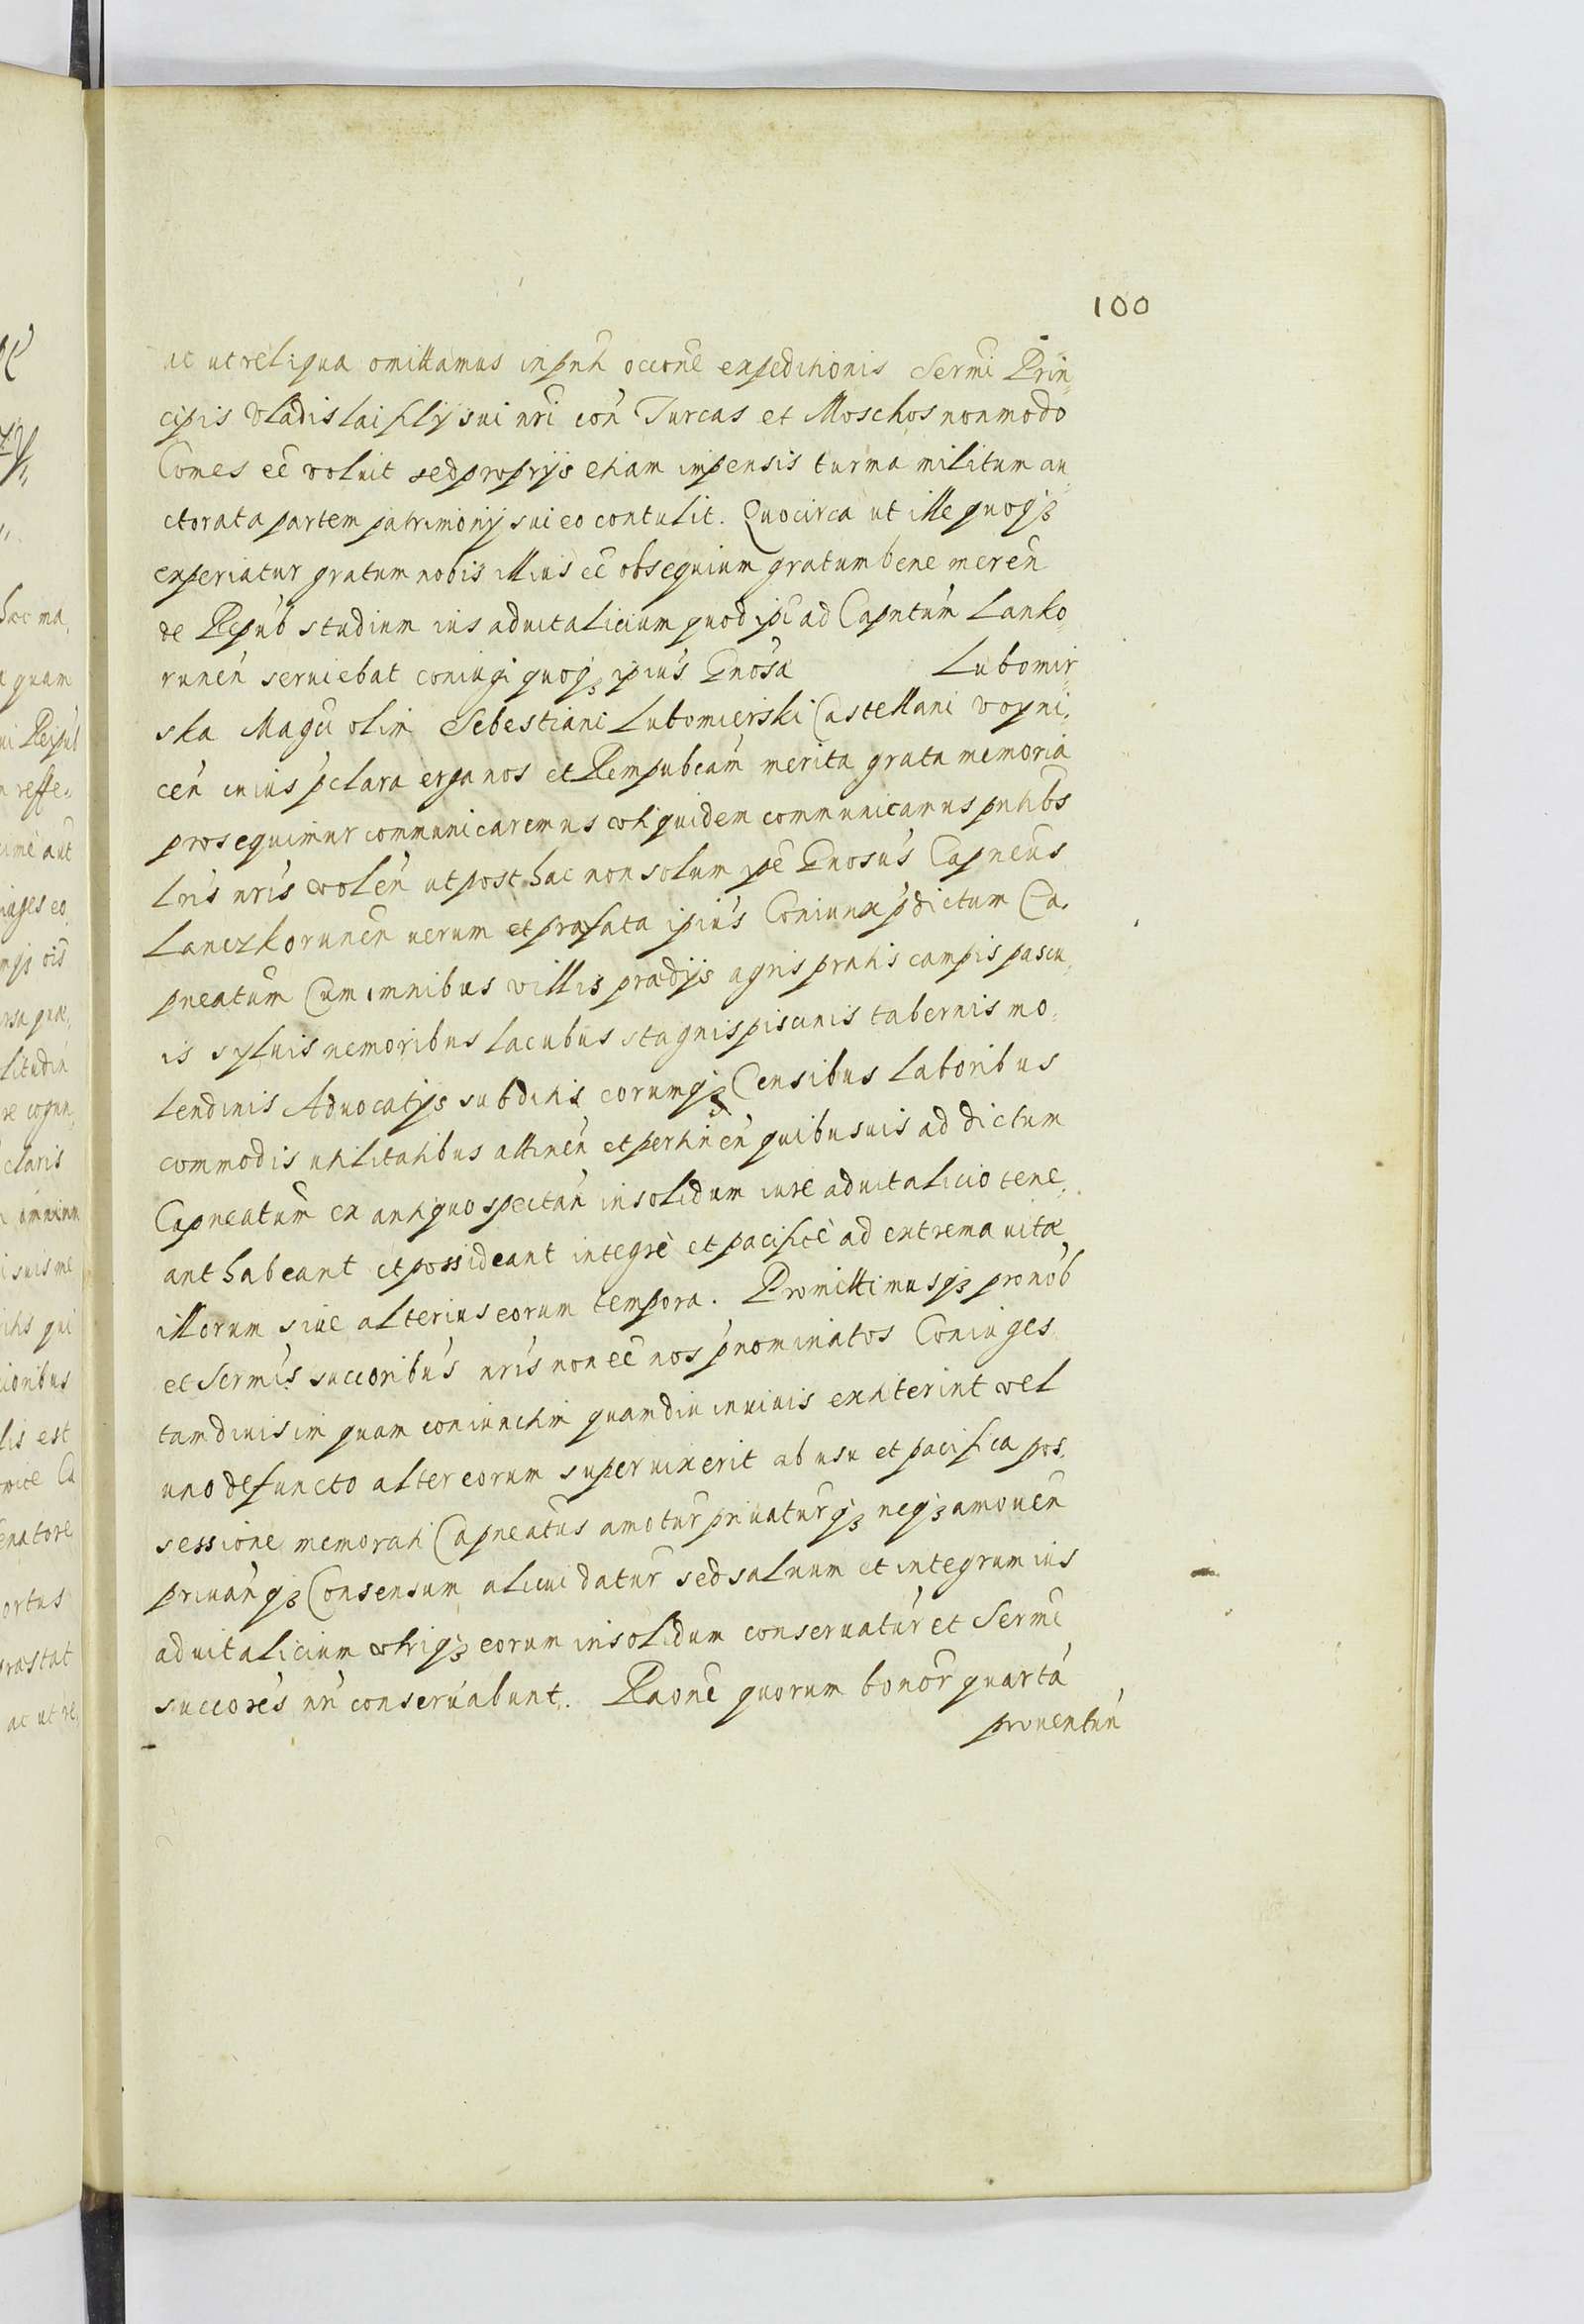 100
ac ut reliqua omittamus in pnti occone expeditionis Sermi Prin„
cipis Vladislai filÿ sui nri con Turcas et Moschos non modo
Comes eẽ voluit sed proprÿs etiam impensis turma militum au„
ctorata partem patrimonÿ sui eo contulit. Quocirca ut ille quoqʒ
experiatur gratum nobis illius eẽ obsequium gratum bene meren
de Repub studium ius aduitalicium quod ipi ad Capntum Lanko„
runen seruiebat coniugi quoqʒ ipius Gnosa Lubomir„
ska Magci olim Sebestiani Lubomierski Castellani voyni„
cen cuius pclara erga nos et Rempubcam merita grata memoria
prosequimur communicaremus coti quidem communicamus pntibs
lris nris volen ut post hac non solum ipe Gnosus Capneus
Lanczkorunen uerum et præfata ipius Coniunx pdictum Ca„
pneatum Cum omnibus villis prædÿs agris pratis campis pascu„
is syluis nemoribus lacubus stagnis piscinis tabernis mo„
lendinis Aduocatÿs subditis eorumqʒ Censibus laboribus
commodis utilitatibus attinen et pertinen quibusuis ad dictum
Capneatum ex antiquo spectan in solidum iure aduitalicio tene„
ant habeant et possideant integrè et pacificè ad extrema uitæ
illorum siue alterius eorum tempora. Promittimusqʒ pro nob
et Sermis succoribus nris non eẽ nos pnominatos Coniuges
tam diuisim quam coniunctim quamdiu in uiuis extiterint vel
uno defuncto alter eorum superuixerit ab usu et pacifica pos„
sessione memorati Capneatus amotur priuaturqʒ neqʒ amouen
priuanqʒ Consensum alicui datur sed saluum et integrum ius
aduitalicium vtriqʒ eorum in solidum conseruatur et Sermi
succores nri conseruabunt. Raone quorum bonor quarta
prouentuu